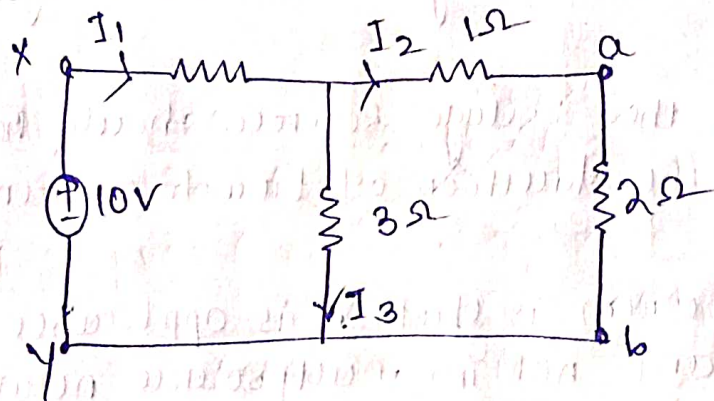 x
I1
I2
1Ω
a
10V
3Ω
2Ω
I3
y
b